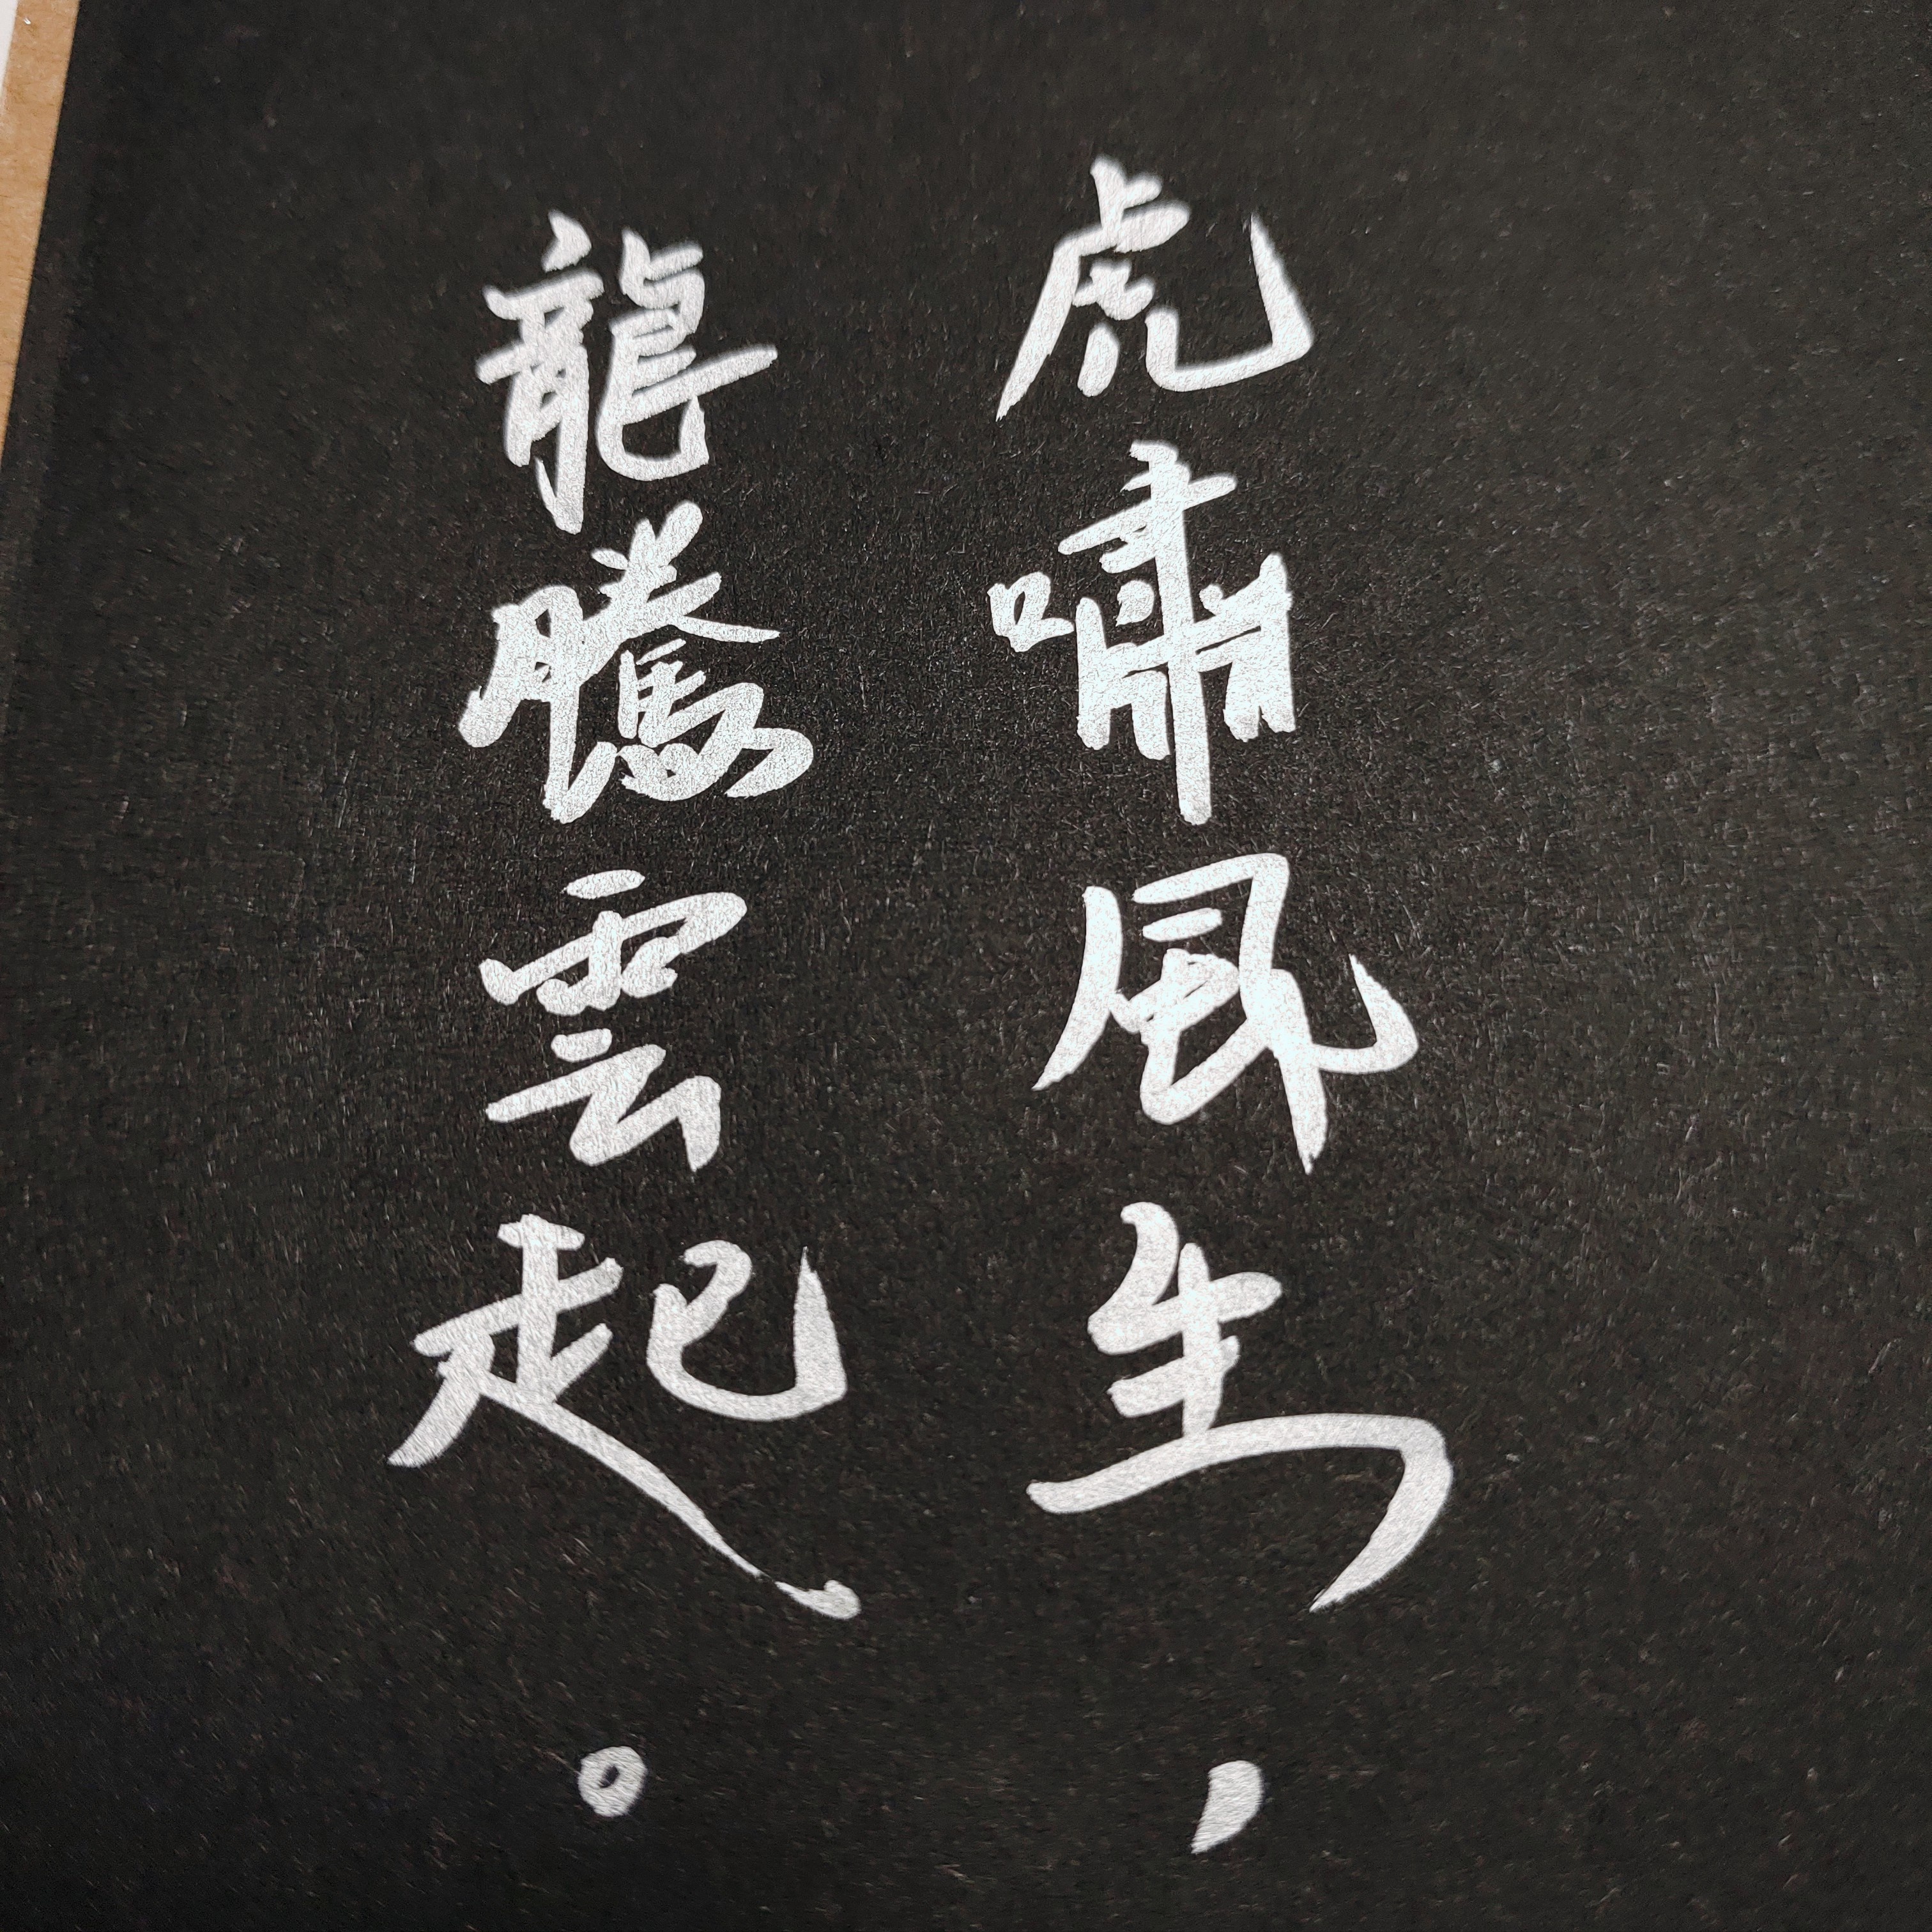 虎嘯風生，
龍騰雲起。